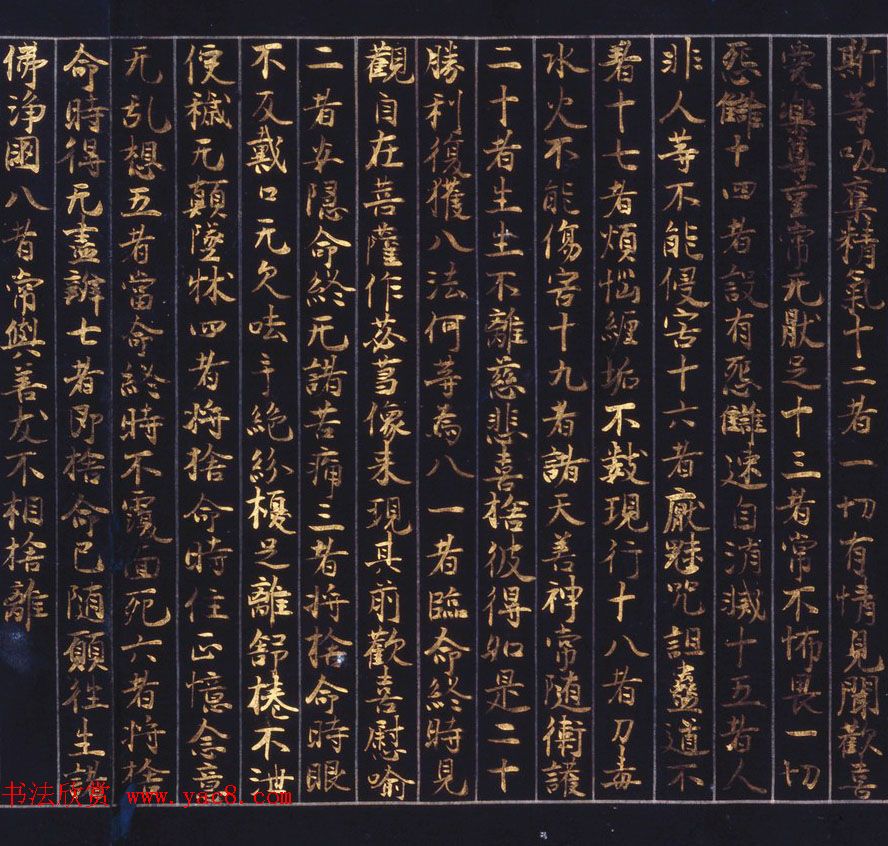 斯等吸棄精氣十二者一切有情見聞歡喜
愛樂尊重常无猒足十三者常不怖畏一切
怨讎十四者設有怨讎速自消滅十五者人
非人等不能侵害十六者厭魅呪詛蠱道不
著十七者煩惱纏垢不數現行十八者刀毒
水火不能傷害十九者諸天善神常随衛護
二十者生生不離慈悲喜捨彼得如是二十
勝利復獲八法何等為八一者臨命終時見
觀自在菩薩作苾蒭像来現其前歡喜慰喻
二者安隱命終无諸苦痛三者將捨命時眼
不反戴口无欠呿手絶紛擾足離舒棬不泄
便穢无顛墜牀四者將捨命時住正憶念意
无乱想五者當命終時不覆面死六者將捨
命時得无盡辯七者即捨命已随願往生諸
佛淨國八者常與善友不相捨離
书法欣赏 www.yac8.com